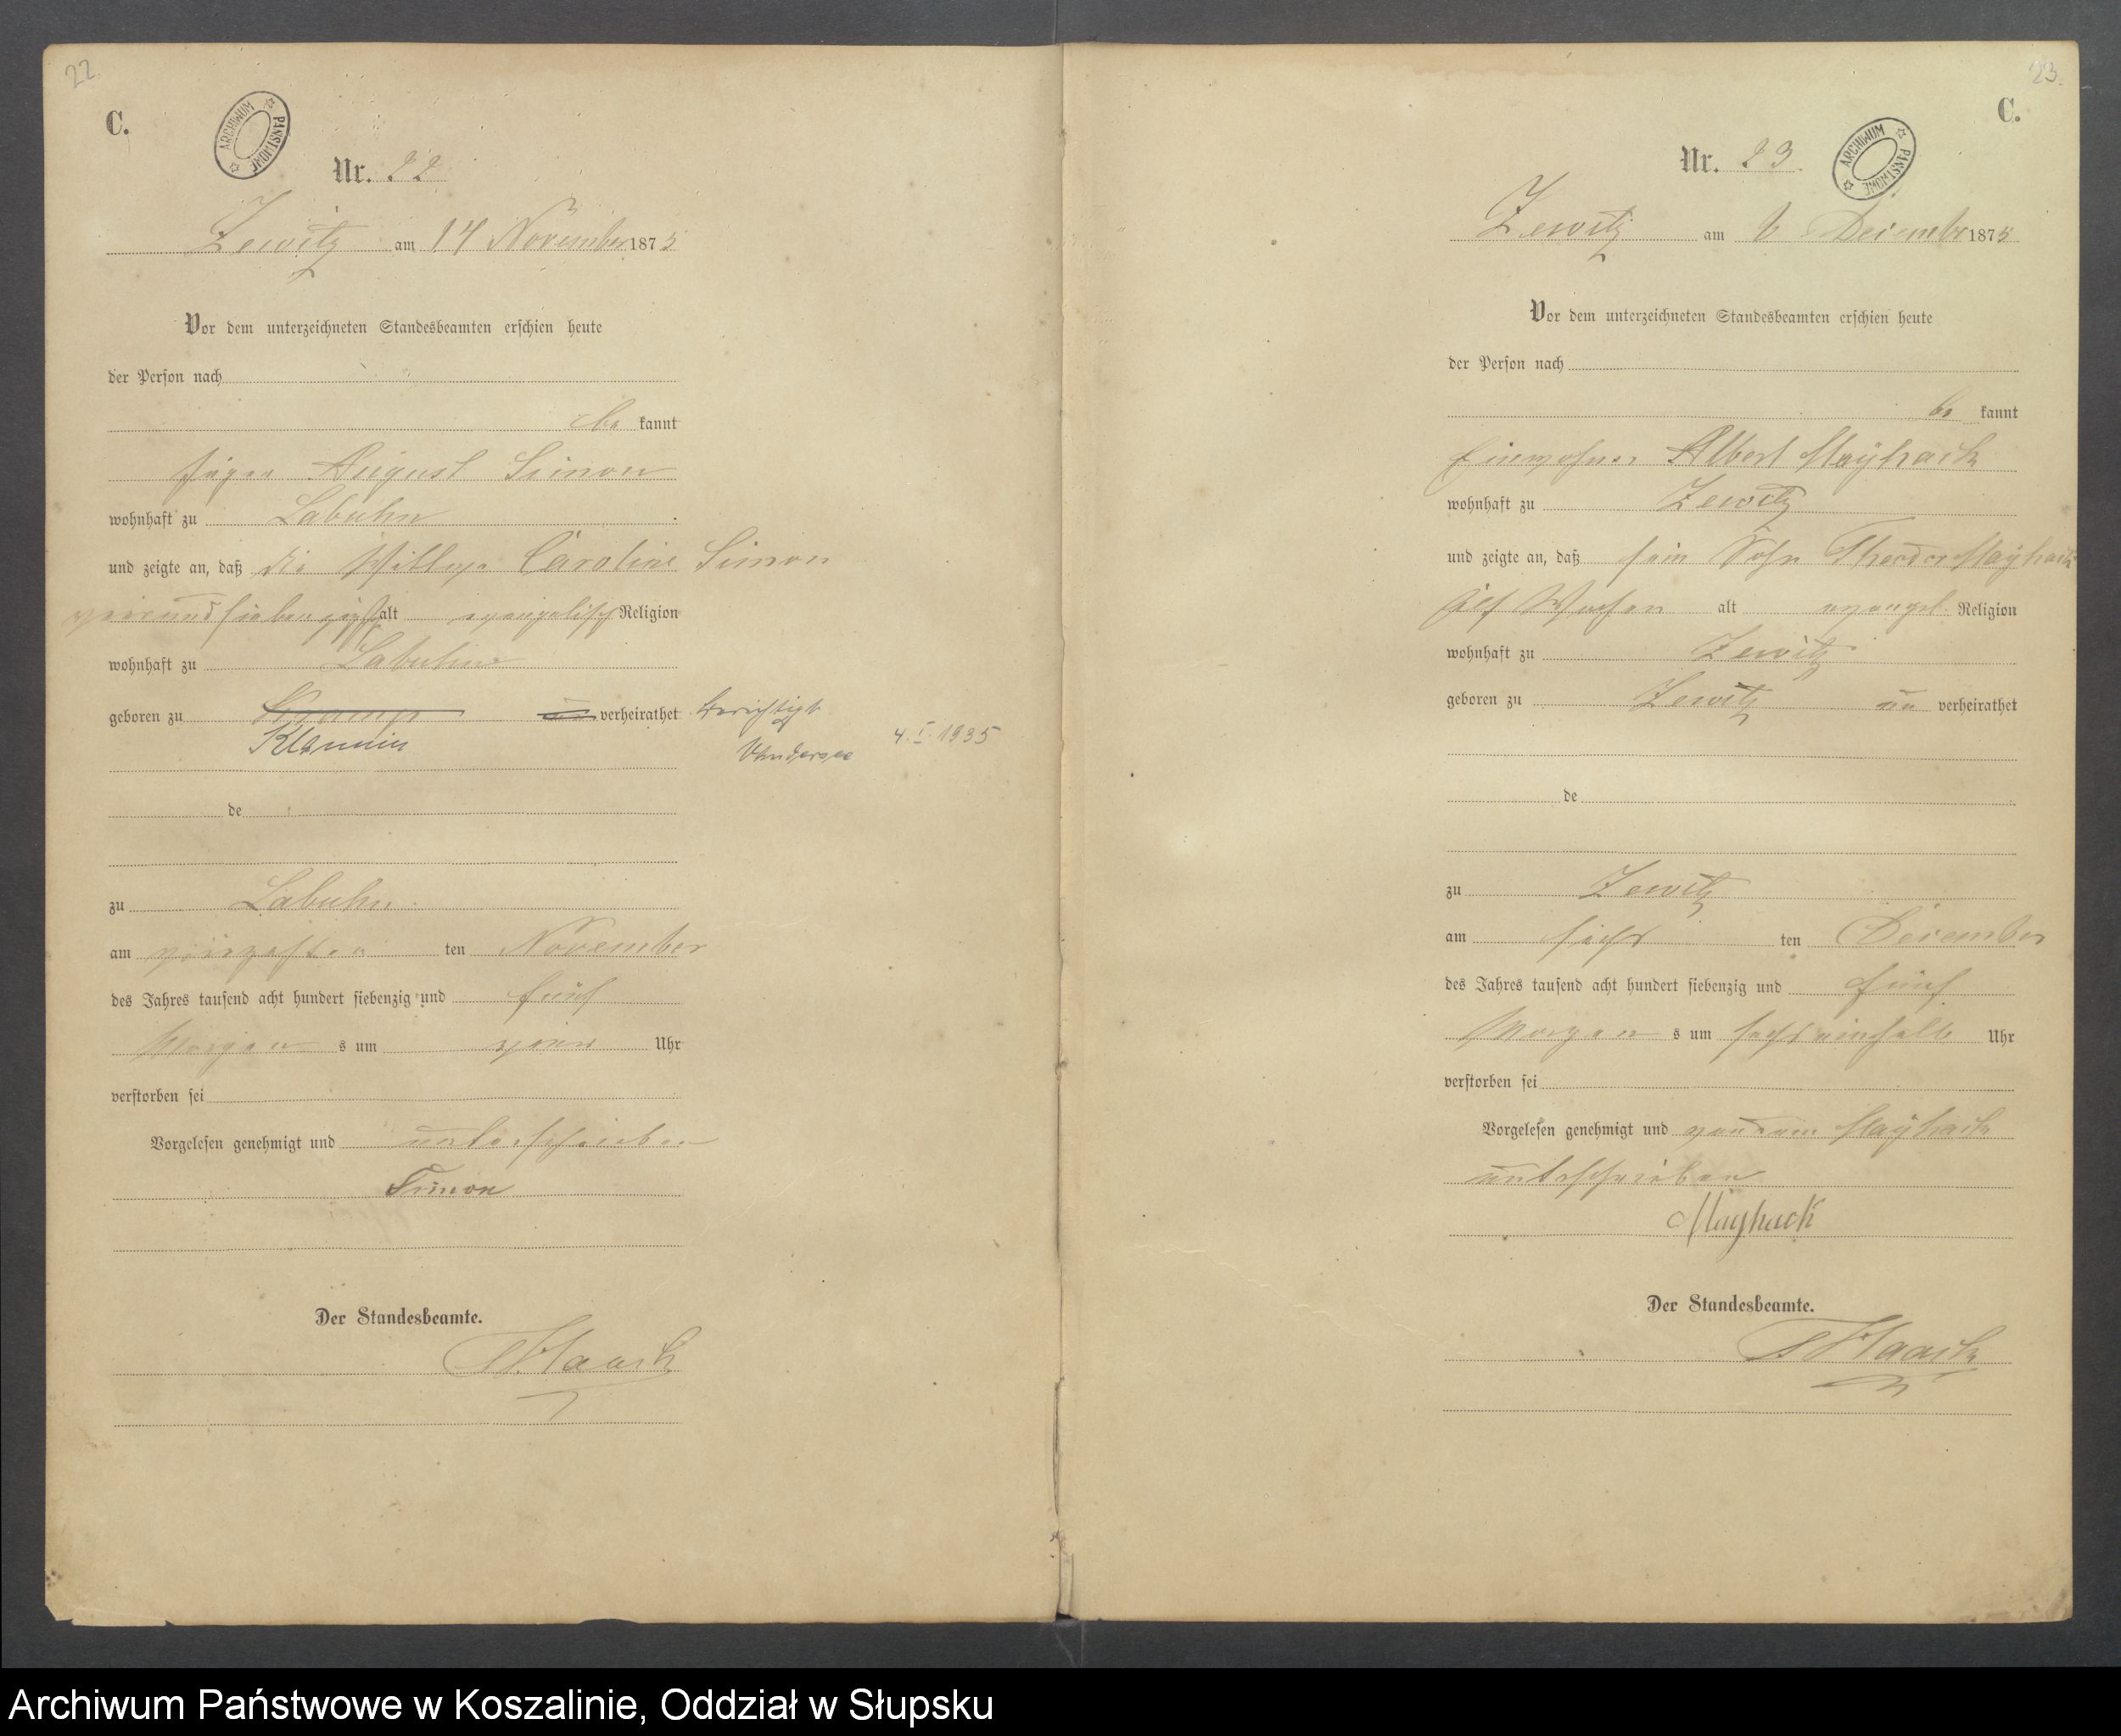 22.
C.
ARCHIWUM PAŃSTWOWE
Nr. 22
Zewitz am 14 November 1875
Vor dem unterzeichneten Standesbeamten erschien heute
der Person nach
be kannt
Jäger August Simon
wohnhaft zu Labuhn
und zeigte an, daß die Wittwe Caroline Simon
vierundsiebenzig alt evangelisch Religion
wohnhaft zu Labuhn
geboren zu verheirathet berichtigt
Klannin 4. I. 1935
de
zu Labuhn
am vierzehten ten November
des Jahres tausend acht hundert siebenzig und fünf
Morgen s um vier Uhr
verstorben sei
Vorgelesen genehmigt und unterschrieben
Simon
Der Standesbeamte.
Haack
23.
C.
ARCHIWUM PAŃSTWOWE
Nr. 23.
Zewitz am 6 December 1875
Vor dem unterzeichneten Standesbeamten erschien heute
der Person nach
be kannt
Einwohner Albert Mayhack
wohnhaft zu Zewitz
und zeigte an, daß sein Sohn Theodor Mayhack
Wochen alt evangel. Religion
wohnhaft zu Zewitz
geboren zu Zewitz un verheirathet
de
zu Zewitz
am sechs ten December
des Jahres tausend acht hundert siebenzig und fünf
Morgen s um sechseinhalb Uhr
verstorben sei
Vorgelesen genehmigt und von dem Mayhack
unterschrieben
Mayhack
Der Standesbeamte.
Haack
Archiwum Państwowe w Koszalinie, Oddział w Słupsku